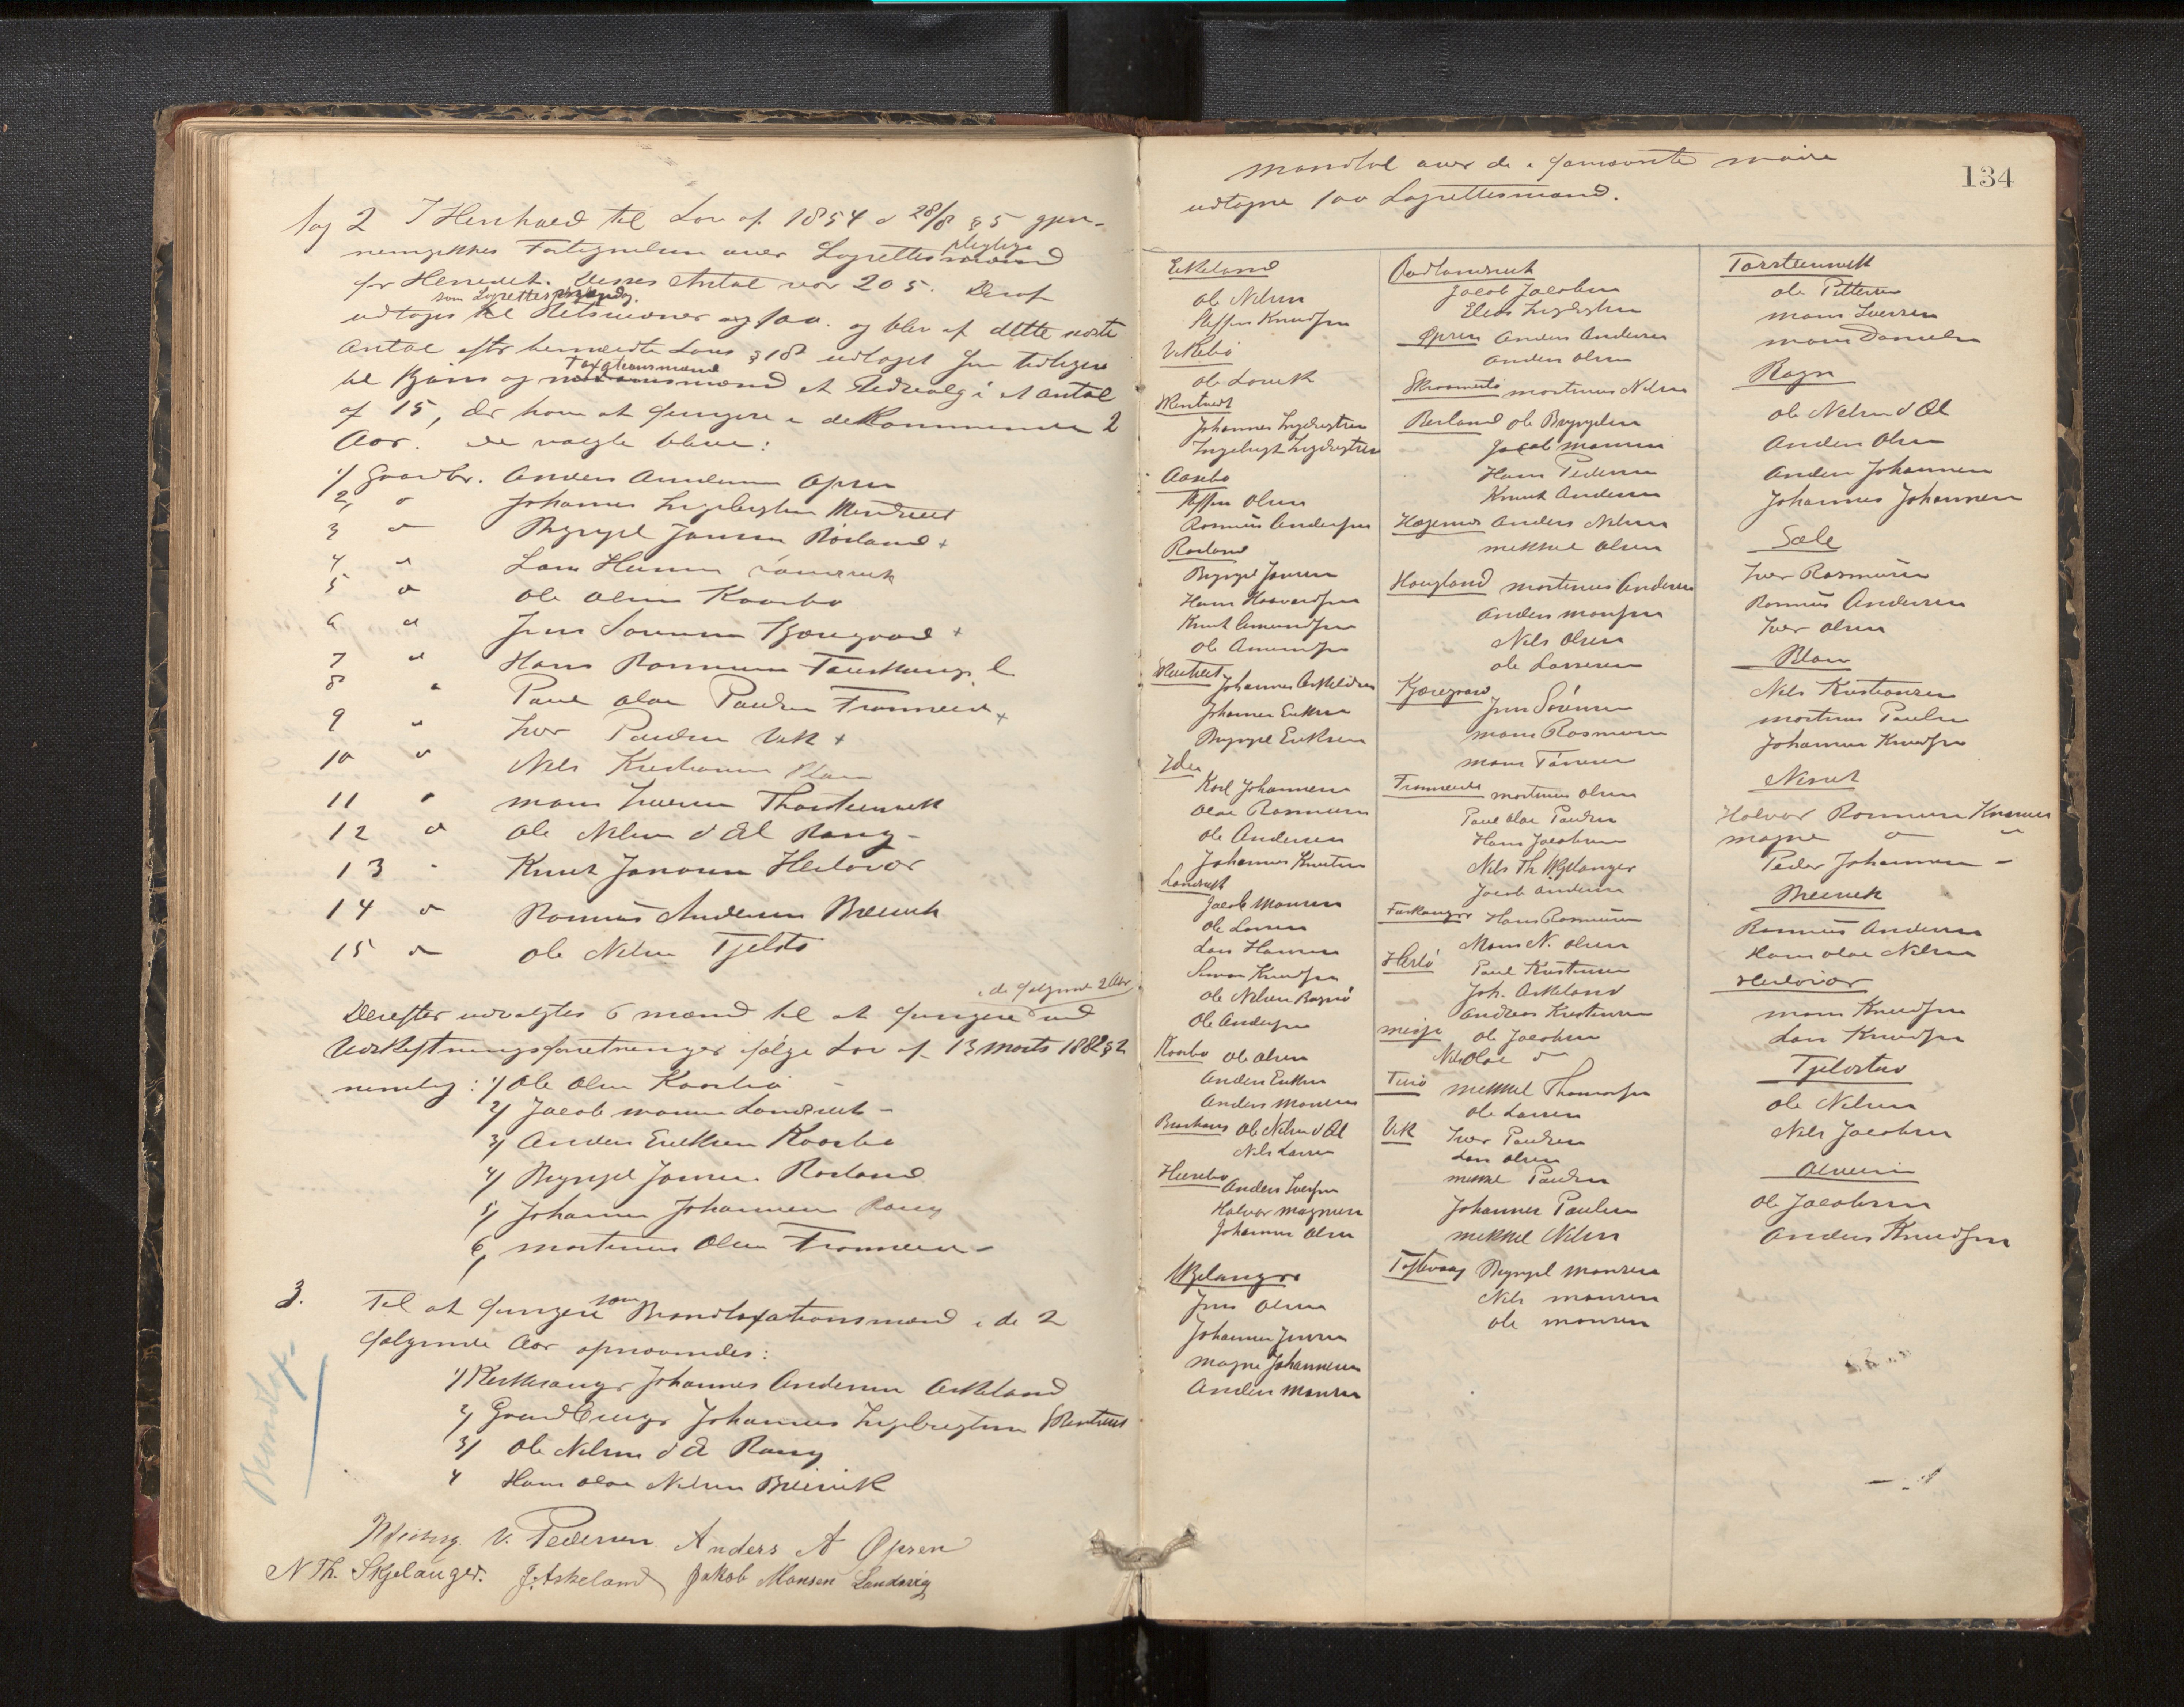 Sag 2 I Henhold til Lov af 1854 d 28/8 § 5 gjen-
nemgikkes Fortegnelsen over Lagrettespligtige
for Herredet. Disses Antal var 205. Deraf
som Lagrettesmænd
udtoges til 100. og blev af dette sidste
Antal efter benævnte Lovs § 18 udtaget
Taxationsmænd
til Skjøns og et Udvalg i et antal
af 15, der have at fungere i de kommende 2
Aar. De valgte bleve:
1/ Gaardbr. Anders Andersen Opsen
2, " Johannes Ingebrigtsen Mendtveit
3 " Brynjel Jansen Rosland +
4 " Lars Hansen Landsvik
5 " Ole Olsen Kaarbø
6 " Jens Sørensen Kjæregaard +
7 " Hans Rasmussen
8 " Paul Olai Paulsen Fromreide +
9 " Iver Paulsen Vik +
10 " Nils Kristiansen Blom
11 " Mons Iversen Thorsteinsvik
12 " Ole Nilsen d Æl Rong
13 " Knut Jansen Hellevær
14 " Rasmus Andersen Breivik
15 " Ole Nilsen Tjeldstø
i de følgende 2 Aar
Derefter udvalgtes 6 mænd til at fungere ved
Udskiftningsforretninger ifølge Lov af 13 Marts 1882 § 2
nemlig: 1/ Ole Olsen Kaarbø
2/ Jacob Monsen Landsvik
3/ Anders Eriksen Kaarbø
4/ Brynjel Jansen Rosland
5/ Johannes Johannesen Rong
6, Mortinus Olsen Fromreide
3. Til at fungere som Brandtaxationsmænd i de 2
følgende Aar opnævnedes:
1/ Kirkesanger Johannes Andersen Askeland
2/ Gaardbruger Johannes Ingebrigtsen Mendtveit
3/ Ole Nilsen d Æ Rong
4 Hans Olai Nilsen Breivik
Brandtax.
V. Pedersen Anders A Opsen
N Th. Skjelanger. J. Askeland Jakob Monsen Landsvig
134
Mandtal over de i foranførte møde
udtagne 100 Lagrettesmænd.
Eikeland
Ole Nilsen
Steffen Knudsen
Vikebø
Ole Larsen
Mendtveit
Johannes Ingebrigtsen
Ingebrigt Ingebrigtsen
Aasebø
Steffen Olsen
Rasmus Andersen
Rosland
Brynjel Jansen
Hans Haavardsen
Knut Amundsen
Ole Amundsen
Johannes Askeldsen
Johannes Eriksen
Brynjel Eriksen
Karl Johannesen
Olai Rasmussen
Ole Andersen
Johannes Knutsen
Landsvik
Jacob Monsen
Ole Larsen
Lars Hansen
Simon Knudsen
Ole Nilsen
Ole Andersen
Kaarbø Ole Olsen
Anders Eriksen
Anders Monsen
Ole Nilsen d Æl
Nils Larsen
Husebø
Anders Iversen
Halvor Magnesen
Johannes Olsen
Skjelanger
Jens Olsen
Johannes Jensen
Magne Johannesen
Anders Monsen
Jacob Jacobsen
Elias Ingebrigtsen
Opsen Anders Andersen
Anders Olsen
Mortinus Nilsen
Berland Ole Brynjelsen
Jacob Monsen
Hans Pedersen
Knut Andersen
Hagenes Anders Nilsen
Mikkel Olsen
Haugland Mortinus Andersen
Anders Monsen
Nils Olsen
Ole Larsen
Kjæregaard
Jens Sørensen
Mons Rasmussen
Mons Tønnesen
Fromreide Mortinus Olsen
Paul Olai Paulsen
Hans Jacobsen
Nils Th. Skjelanger
Jacob Andersen
Hans Rasmussen
Mons N. Olsen
Herlø Paul Kristensen
Joh. Askeland
Andreas Kristensen
Ole Jacobsen
Nils Olai "
Mikkel Thomassen
Ole Larsen
Vik Iver Paulsen
Lars Olsen
Mikkel Paulsen
Johannes Paulsen
Mikkel Nilsen
Toftevaag Brynjel Monsen
Nils Monsen
Ole Monsen
Torsteinsvik
Ole Pettersen
Mons Iversen
Mons Danielsen
Rong
Ole Nilsen d Æl
Anders Olsen
Anders Johannesen
Johannes Johannesen
Sæle
Iver Rasmussen
Rasmus Andersen
Iver Olsen
Blom
Nils Kristiansen
Mortinus Paulsen
Johannes Knudsen
Nesset
Halvor Rasmussen
Magne " "
Peder Johannesen "
Breivik
Rasmus Andersen
Hans Olai Nilsen
Hellevær
Mons Knudsen
Lars Knudsen
Tjeldstø
Ole Nilsen
Nils Jacobsen
Alveim
Ole Jacobsen
Anders Knudsen